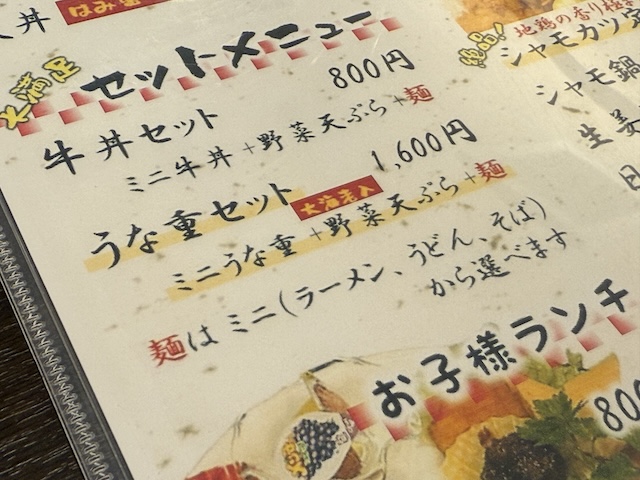 丼
はみ
大満足
セットメニュー
牛丼セット 800円
ミニ牛丼+野菜天ぷら+麺
うな重セット 1,600円
大海老入
ミニうな重+野菜天ぷら+麺
麺はミニ(ラーメン、うどん、そば)
から選べます
お子様ランチ
800
絶品!
地鶏の香り極
シャモカツ
シャモ鍋
生姜